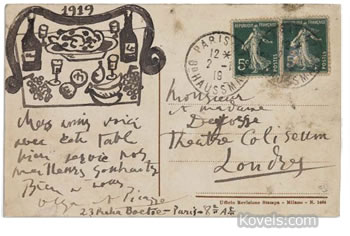 1919
PARIS
12*
2-
19
BD HAUSSMANN
5c
Chers amis voici
avec cette table
bien servie nos
meilleurs souhaits
Bien a vous
Olga et Picasso
23 Rue La Boetie - Paris - 8e
Monsieur
et madame
Theatre Coliseum
Londres
Ufficio Revisione Stampa - Milano - N.
Kovels.com